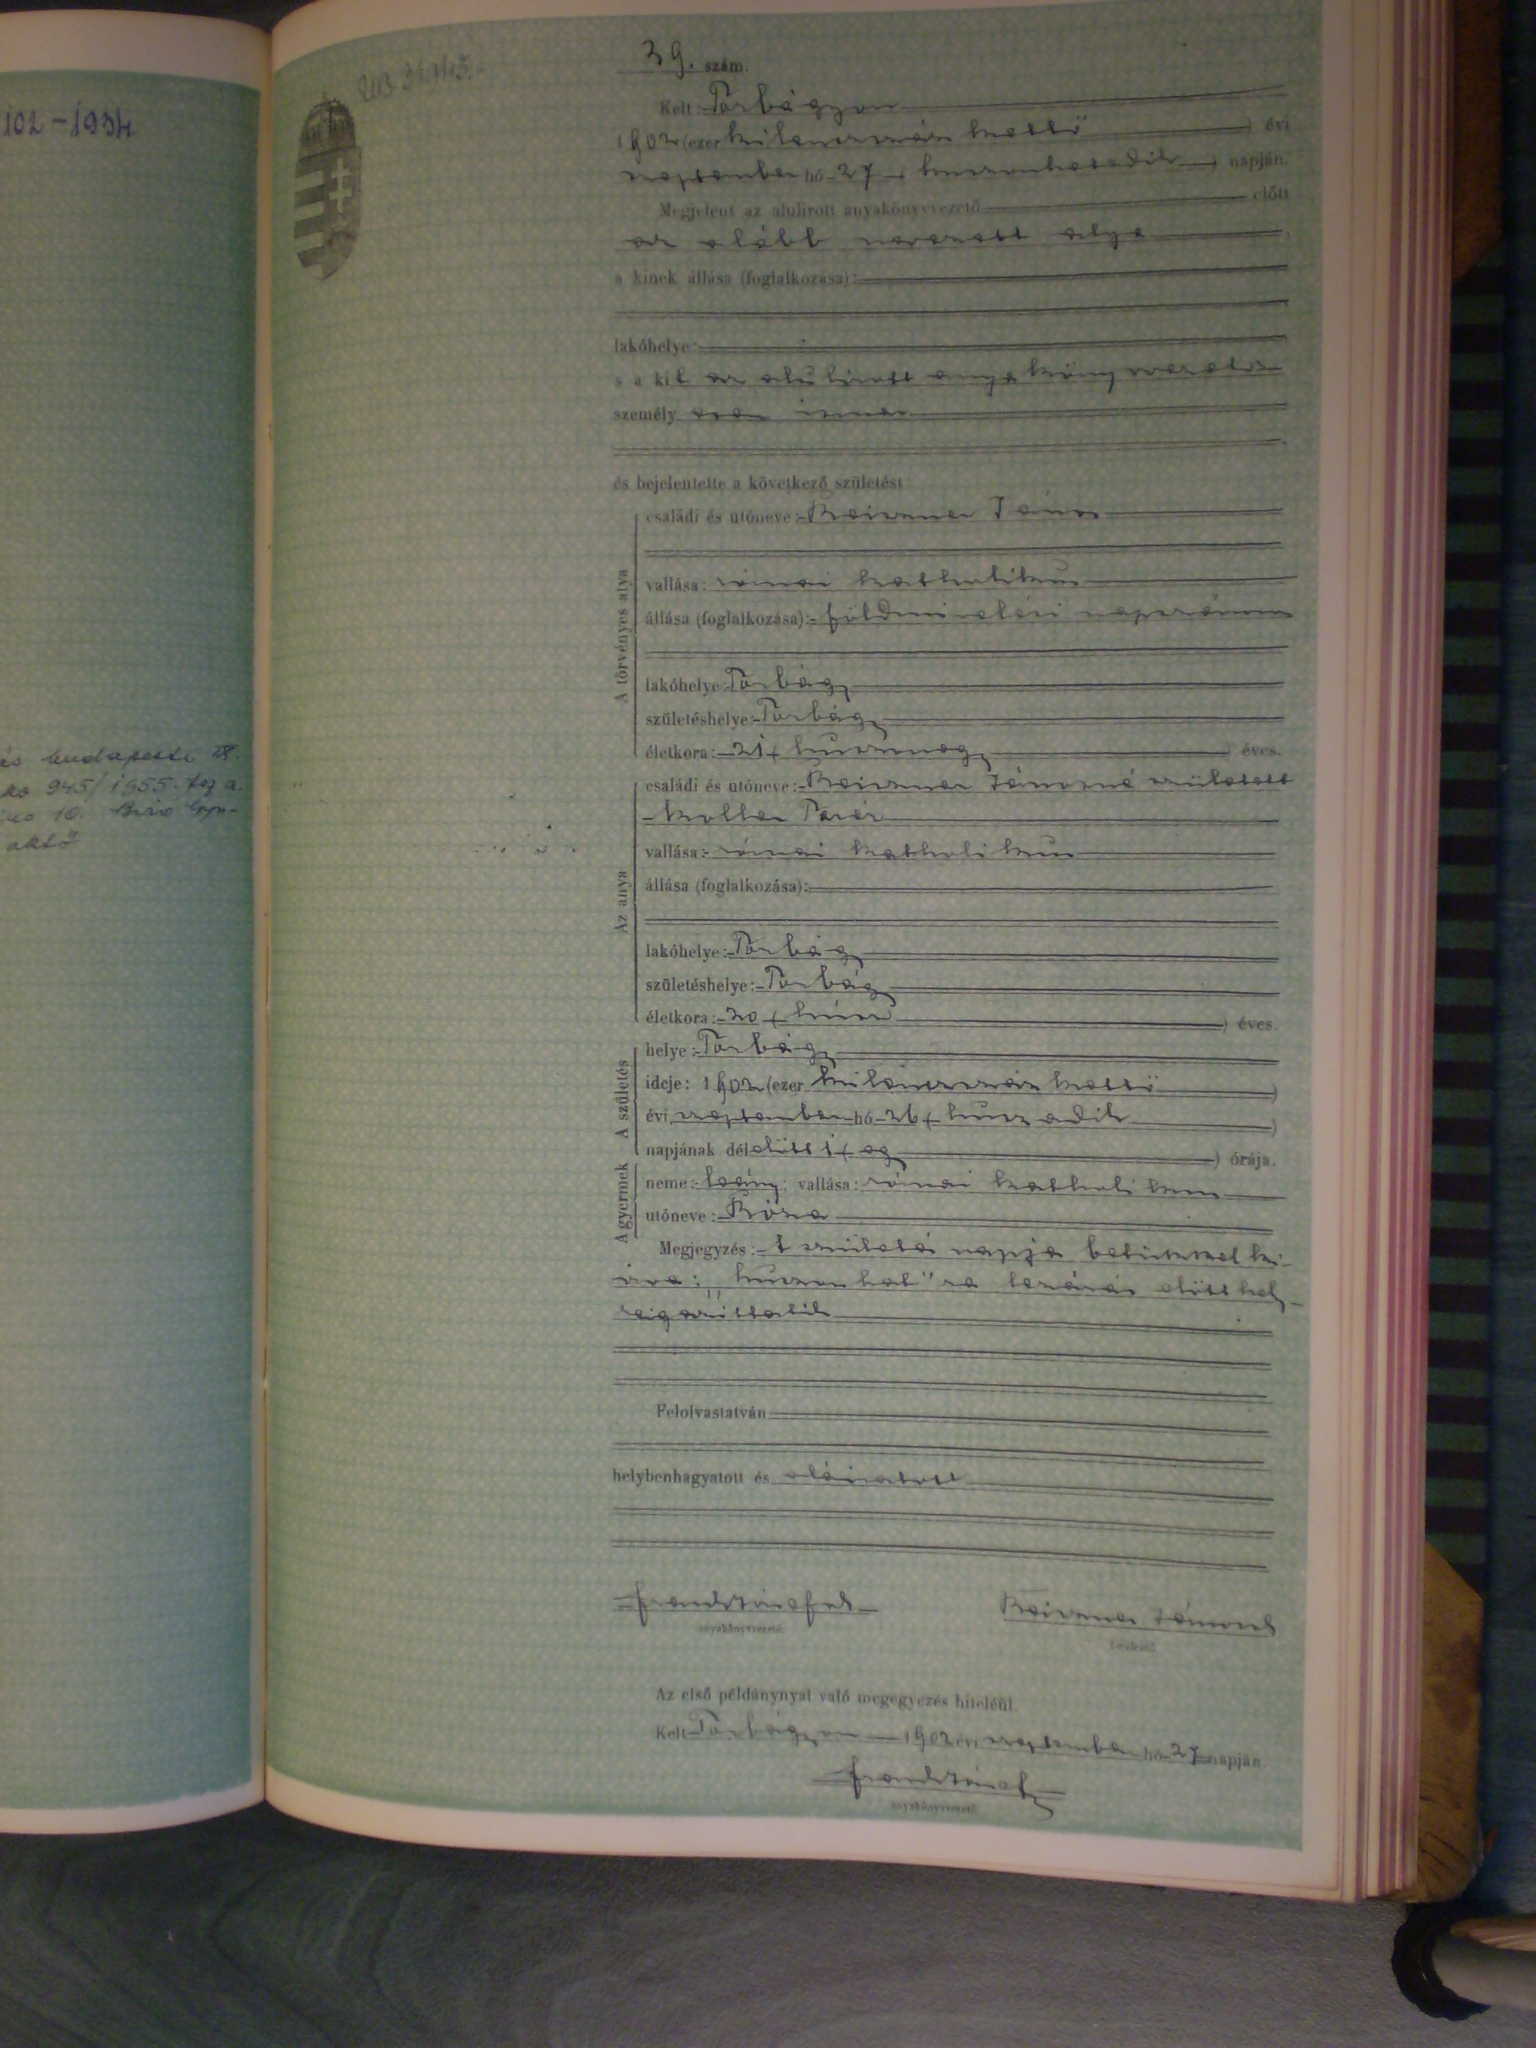 102-1934
budapesti
945/1955.
10. Biró
aktő
39. szám.
Kelt Torbágyon
1902 (ezer kilenczszáz kettő ) évi
szeptember hó 27 ( huszonhetedik ) napján.
Megjelent az alulirott anyakönyvvezető előtt
az alább nevezett atya
a kinek állása (foglalkozása):
lakóhelye:
s a kit az alulirott anyakönyvvezető
személy ismer
és bejelentette a következő születést
A törvényes atya
családi és utóneve: Reiszner János
vallása: római katholikus
állása (foglalkozása): földmivelési napszámos
lakóhelye: Torbágy
születéshelye: Torbágy
életkora: 21 ( huszonegy ) éves.
Az anya
családi és utóneve: Reiszner Jánosné született
Koller Teréz
vallása: római katholikus
állása (foglalkozása):
lakóhelye: Torbágy
születéshelye: Torbágy
életkora: 20 ( húsz ) éves.
A születés
helye: Torbágy
ideje: 1902 (ezer kilenczszáz kettő )
évi szeptember hó 26 ( huszadik )
napjának délelőtt 1 ( egy ) órája.
A gyermek
neme: leány; vallása: római katholikus
utóneve: Róza
Megjegyzés: A születés napja betükkel ki-
írva: „huszonhat"ra lezárás előtt hely-
reigazittatik
Felolvastatván
helybenhagyatott és aláiratott
anyakönyvvezető.
Reiszner János
bejelentő.
Az első példánynyal való megegyezés hiteléül.
Kelt Torbágyon 1902 évi szeptember hó 27 napján
anyakönyvvezető.